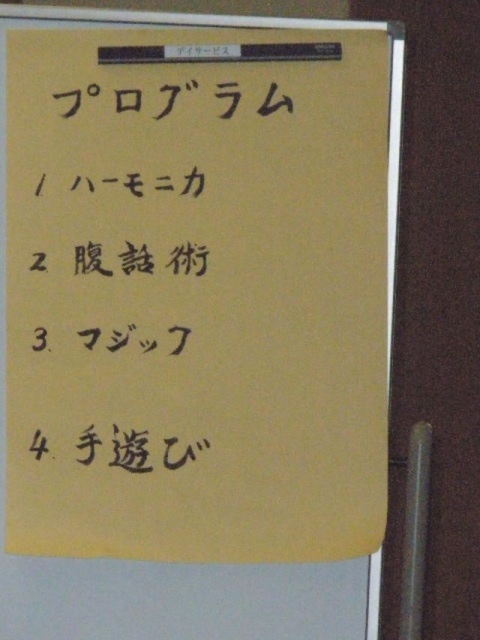 デイサービス
プログラム
1 ハーモニカ
2. 腹話術
3. マジック
4. 手遊び